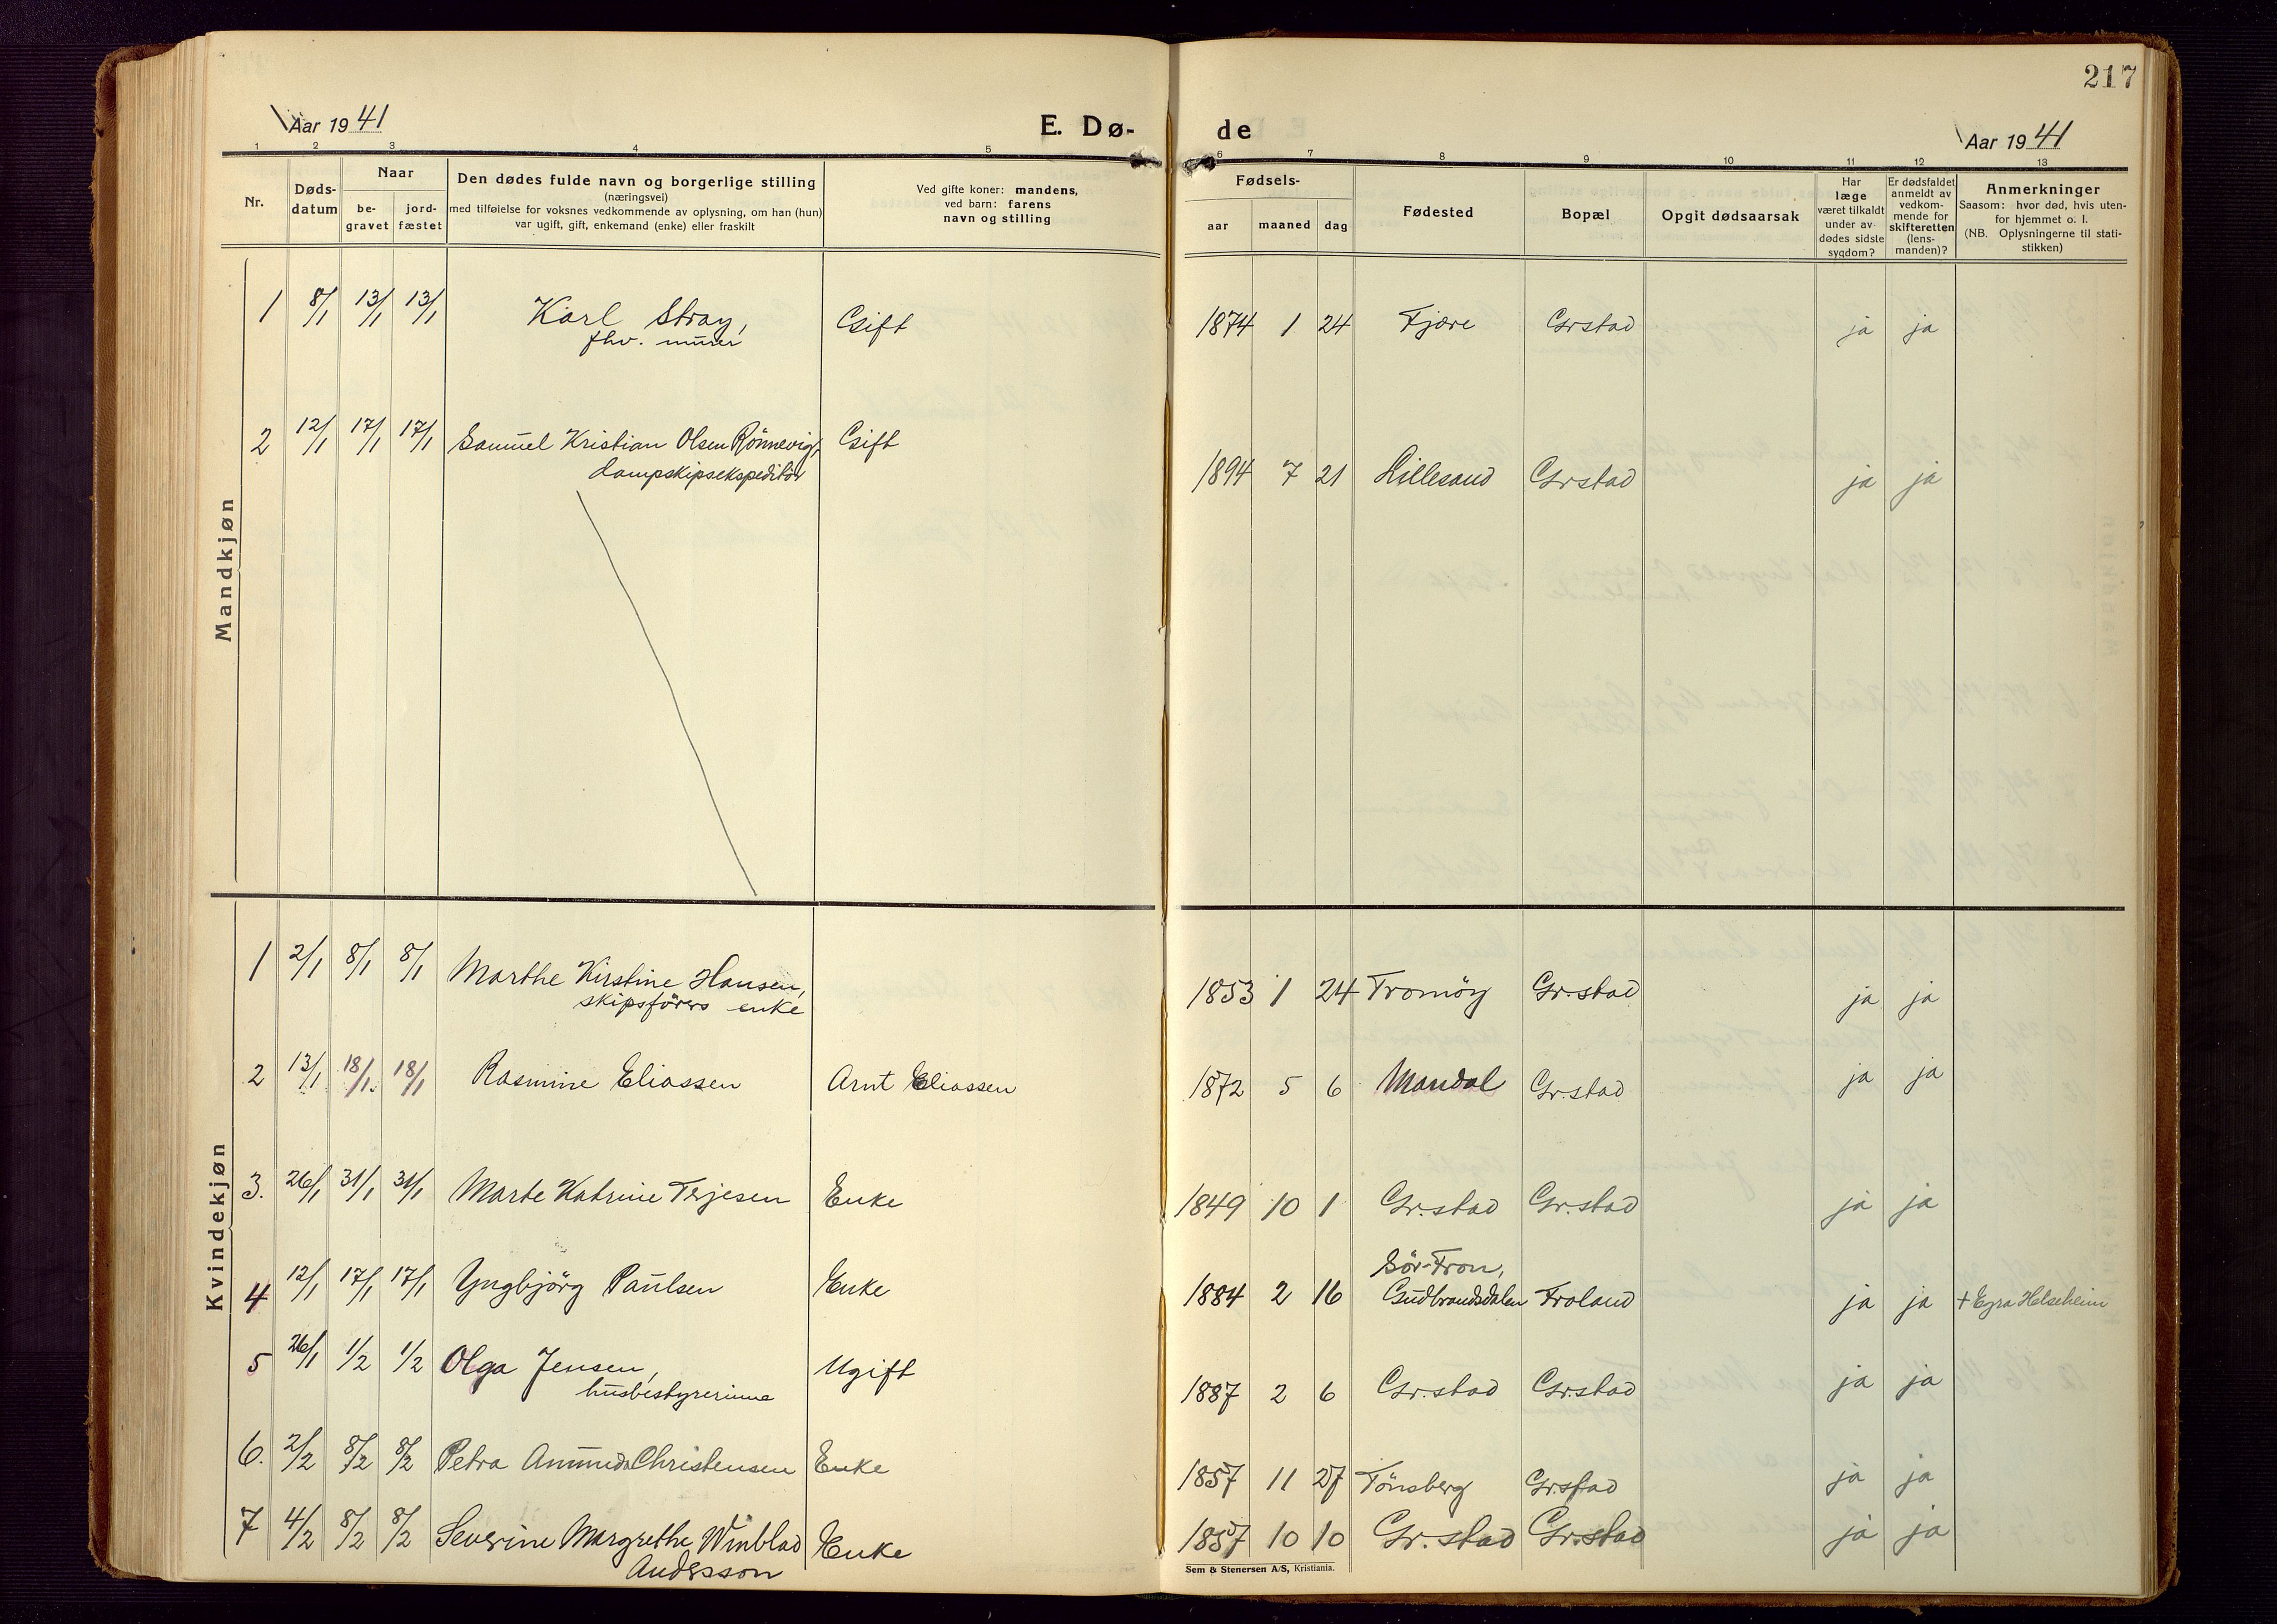 217
Aar 1941
E. Dø-
de
Aar 1941
1 2 3 4 5 6 7 8 9 10 11 12 13
Nr.
Døds-
datum
Naar
be-
gravet
jord-
fæstet
Den dødes fulde navn og borgerlige stilling
(næringsvei)
med tilføielse for voksnes vedkommende av oplysning, om han (hun)
var ugift, gift, enkemand (enke) eller fraskilt
Ved gifte koner: mandens,
ved barn: farens
navn og stilling
Fødsels-
aar maaned dag
Fødested
Bopæl
Opgit dødsaarsak
Har
læge
været tilkaldt
under av-
dødes sidste
sygdom?
Er dødsfaldet
anmeldt av
vedkom-
mende for
skifteretten
(lens-
manden)?
Anmerkninger
Saasom: hvor død, hvis uten-
for hjemmet o. l.
(NB. Oplysningerne til stati-
stikken)
Mandkjøn
1 8/1 13/1 13/1 Karl Stray, Gift 1874 1 24 Fjære Gr.stad ja ja
fhv. murer
2 12/1 17/1 17/1 Samuel Kristian Olsen Rönnevig, Gift 1894 7 21 Lillesand Gr.stad ja ja
dampskipsekspeditör
Kvindekjøn
1 2/1 8/1 8/1 Marthe Kirstine Hansen, 1853 1 24 Tromöy Gr.stad ja ja
skipsförers enke
2 13/1 18/1. 18/1 Rasmine Eliassen Arnt Eliassen 1872 5 6 Mandal Gr.stad ja ja
3. 26/1 31/1 31/1 Marte Katrine Terjesen Enke 1849 10 1 Gr.stad Gr.stad ja ja
Sör-Fron,
4 12/1 17/1 17/1 Yngbjörg Paulsen Enke 1884 2 16 Gudbrandsdalen Froland ja ja + Ezra Helseheim
5 26/1 1/2 1/2 Olga Jensen, Ugift 1887 2 6 Gr.stad Gr.stad ja ja
husbestyrerinne
6. 2/2 8/2 8/2 Petra Amunda Christensen Enke 1857 11 27 Tönsberg Gr.stad ja ja
7 4/2 8/2 8/2 Severine Margrethe Winblad Enke 1857 10 10 Gr.stad Gr.stad ja ja
Andersson
Sem & Stenersen A/S, Kristiania.